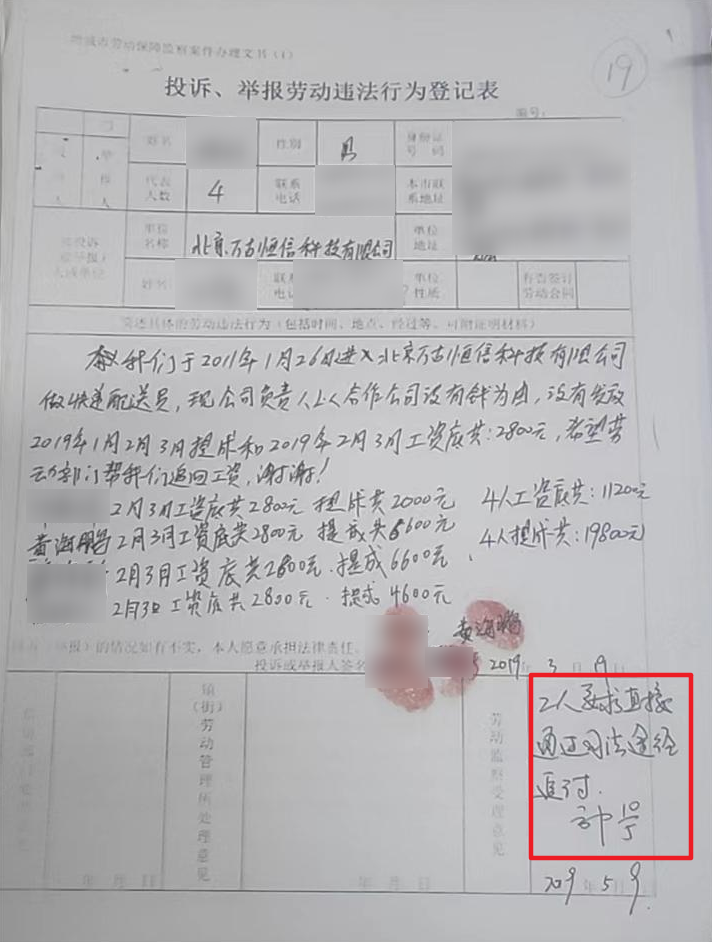 增城市劳动保障监察案件办理文书（1）
19
投诉、举报劳动违法行为登记表
编号：
姓名 性别 男 身份证号码
代表人数 4 联系电话 本市联系地址
单位名称 北京万古恒信科技有限公司 单位地址
姓名 联系电话 单位性质 有否签订劳动合同
简述具体的劳动违法行为（包括时间、地点、经过等，可附证明材料）
我们于2011年1月26日进入北京万古恒信科技有限公司
做快递配送员，现公司负责人以合作公司没有钱为由，没有发放
2019年1月2月3月提成和2019年2月3月工资底共：2800元，希望劳
动部门帮我们追回工资，谢谢！
2月3月工资底共2800元 提成共2000元 4人工资底共：11200元
黄海鹏2月3月工资底共2800元 提成共6600元 4人提成共：19800元
2月3月工资底共2800元．提成6600元
2月3日工资底共2800元．提成4600元
黄海鹏
的情况如有不实，本人愿意承担法律责任。
投诉或举报人签名 2019年3月19日
镇（街）劳动管理所处理意见
劳动监察受理意见
2人要求直接
通过司法途经
追讨．
年 月 日 年 月 日 2019年5月9